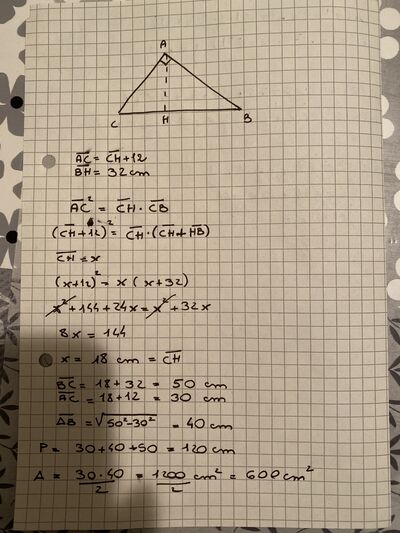 A
C H B
A̅C̅ = C̅H̅ + 12
B̅H̅ = 32 cm
A̅C̅² = C̅H̅ · C̅B̅
(C̅H̅ + 12)² = C̅H̅ · (C̅H̅ + H̅B̅)
C̅H̅ = x
(x+12)² = x (x+32)
x² + 144 + 24x = x² + 32x
8x = 144
x = 18 cm = C̅H̅
B̅C̅ = 18 + 32 = 50 cm
A̅C̅ = 18 + 12 = 30 cm
A̅B̅ = √50² - 30² = 40 cm
P = 30 + 40 + 50 = 120 cm
A = 30 · 40 / 2 = 1200 / 2 cm² = 600 cm²